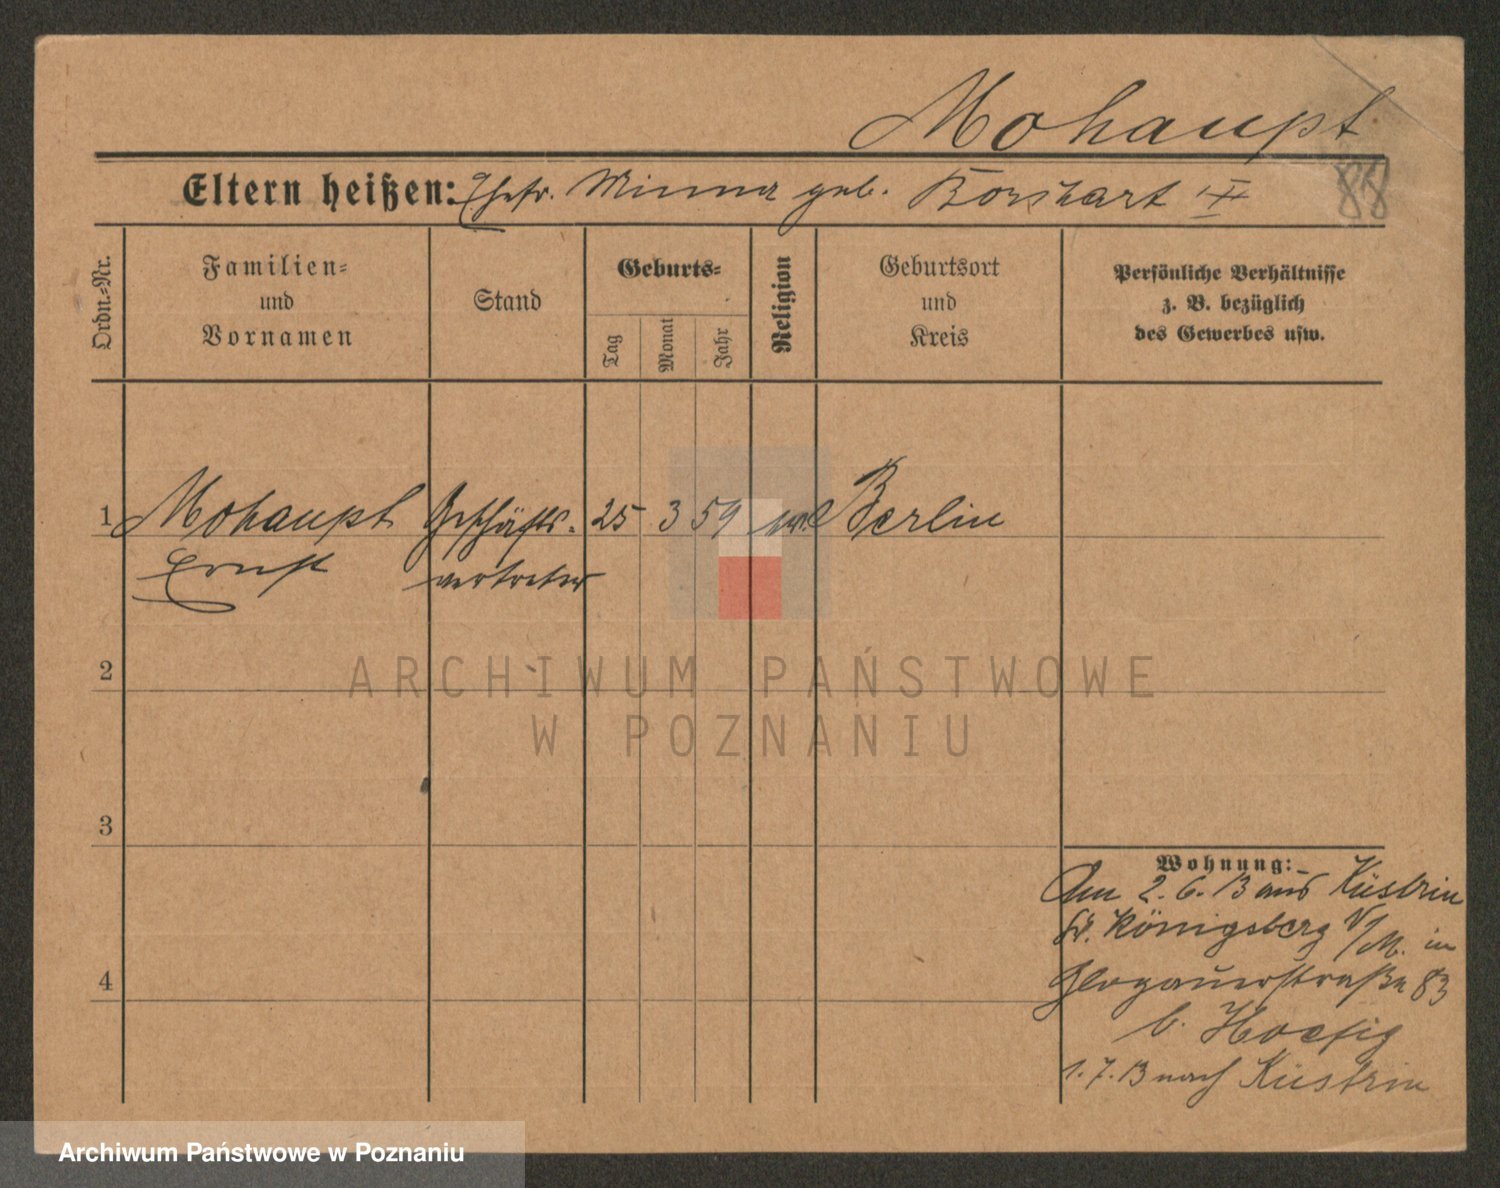 Mohaupt
Eltern heißen: Ehefr. Minna geb. Borchart
88
Ordn.-Nr.
Familien-
und
Vornamen
Stand
Geburts-
Tag
Monat
Jahr
Religion
Geburtsort
und
Kreis
Persönliche Verhältnisse
z. B. bezüglich
des Gewerbes usw.
1 Mohaupt Geschäfts- 25 3 59 Berlin
Ernst vertreter
2
3
4
Wohnung:
Am 2.6.13 aus Küstrin
Kr. Königsberg N/M. in
Glogauerstraße 83
b. Hoefig
1.7.13 nach Küstrin
ARCHIWUM PAŃSTWOWE
W POZNANIU
Archiwum Państwowe w Poznaniu